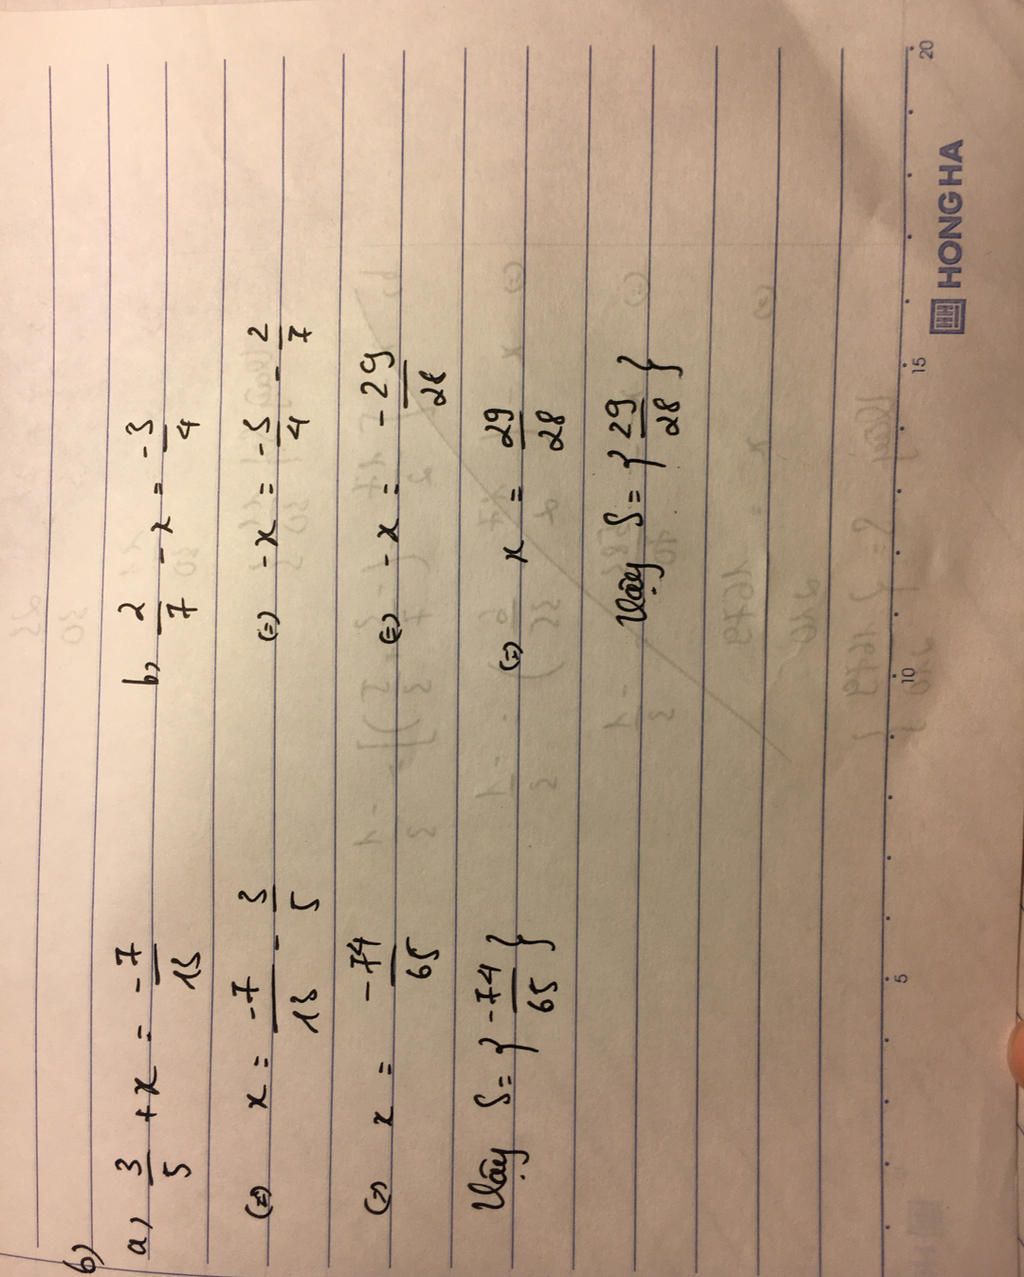 6)
a) 3/5 + x = -7/13
(=) x = -7/13 - 3/5
(=) x = -74/65
Vậy S = { -74/65 }
b) 2/7 - x = -3/4
(=) -x = -3/4 - 2/7
(=) -x = -29/28
(=) x = 29/28
Vậy S = { 29/28 }
5 10 15 20
HONG HA